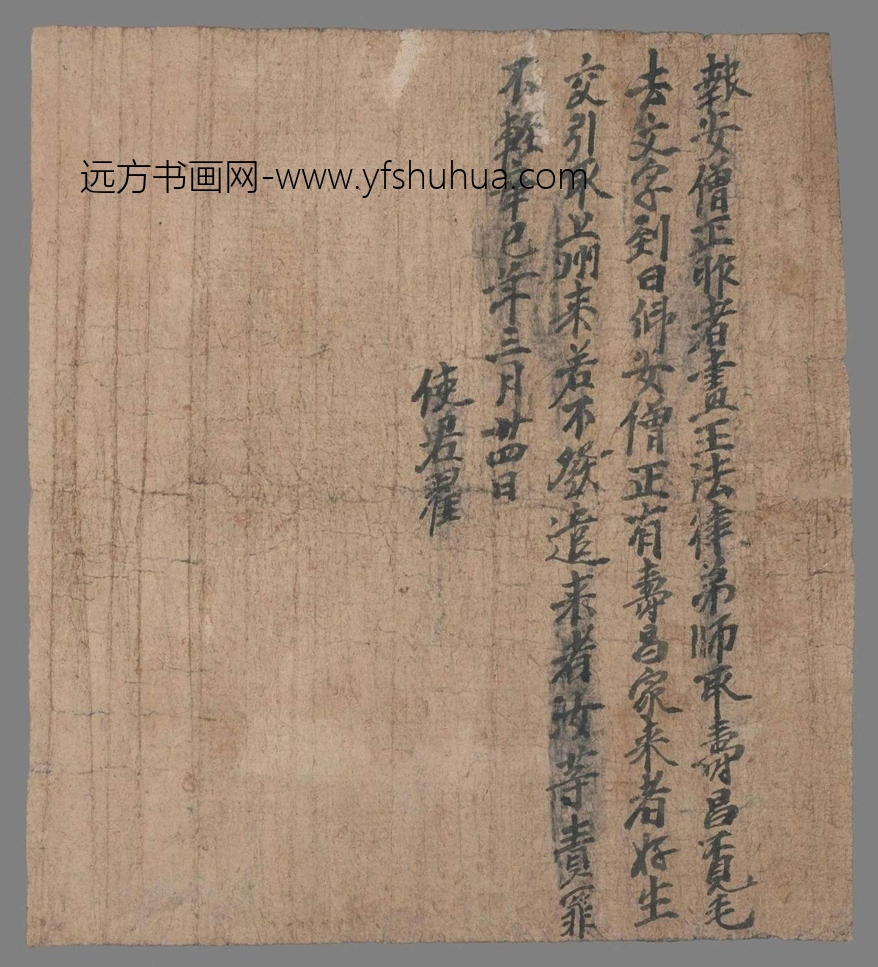 報安僧正昨者畫王法律弟師取壽昌覓毛
去文字到日仰安僧正有壽昌家来者好生
交引取上州来若不發遣来者汝等責罪
不輕辛巳年三月廿四日
使君翟
远方书画网-www.yfshuhua.com